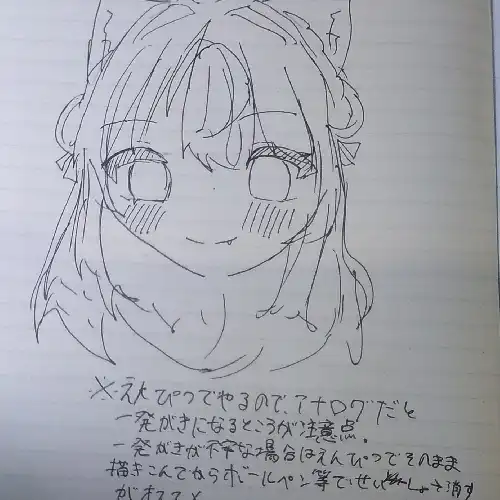 ※えんぴつでやるので、アナログだと
一発がきになるところが注意点。
一発がきが不安な場合はえんぴつでそのまま
描きこんでからボールペン等でせいしょ→消す
がオススメ